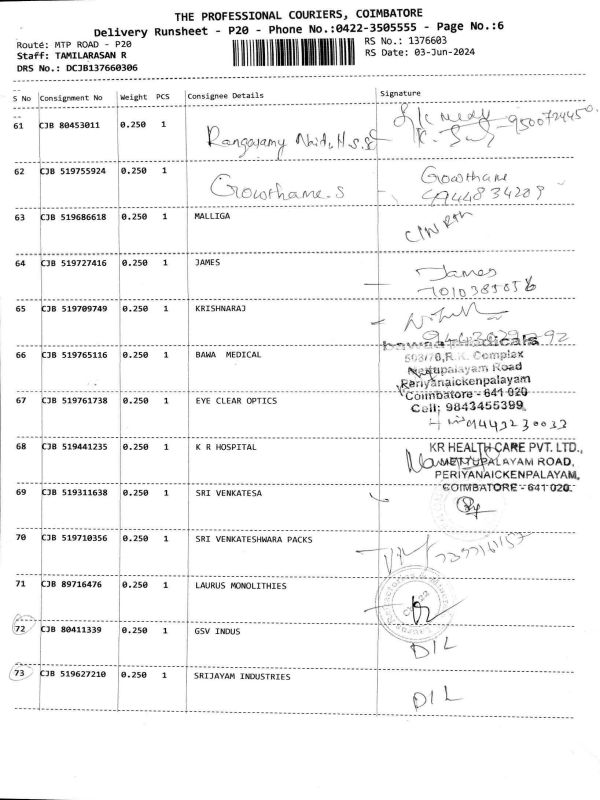 THE PROFESSIONAL COURIERS, COIMBATORE
Delivery Runsheet - P20 - Phone No.:0422-3505555 - Page No.:6
Route: MTP ROAD - P20
RS No.: 1376603
Staff: TAMILARASAN R
RS Date: 03-Jun-2024
DRS No.: DCJB137660306
S No Consignment No Weight PCS Consignee Details Signature
61 CJB 80453011 0.250 1 Rangasamy Naidu H.s.s
9500724450
62 CJB 519755924 0.250 1 Gowthame.s Gowthame
9444834209
63 CJB 519686618 0.250 1 MALLIGA
64 CJB 519727416 0.250 1 JAMES James
65 CJB 519709749 0.250 1 KRISHNARAJ
66 CJB 519765116 0.250 1 BAWA MEDICAL
503/70,R.K. Complex
Mettupalayam Road
Periyanaickenpalayam
Coimbatore - 641 020
Cell: 9843455399
67 CJB 519761738 0.250 1 EYE CLEAR OPTICS
68 CJB 519441235 0.250 1 K R HOSPITAL
KR HEALTH CARE PVT. LTD.,
METTUPALAYAM ROAD,
PERIYANAICKENPALAYAM,
COIMBATORE - 641 020.
69 CJB 519311638 0.250 1 SRI VENKATESA
70 CJB 519710356 0.250 1 SRI VENKATESHWARA PACKS
71 CJB 89716476 0.250 1 LAURUS MONOLITHIES
72 CJB 80411339 0.250 1 GSV INDUS D/L
73 CJB 519627210 0.250 1 SRIJAYAM INDUSTRIES D/L